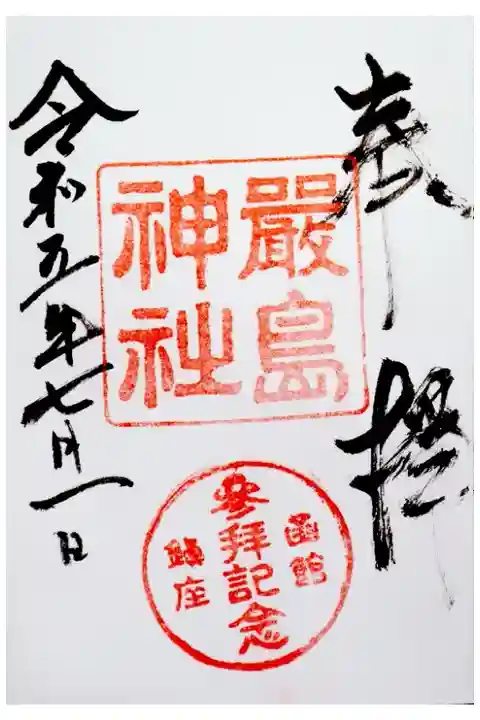 奉拝
嚴島
神社
函館
參拝記念
鎮座
令和五年七月一日